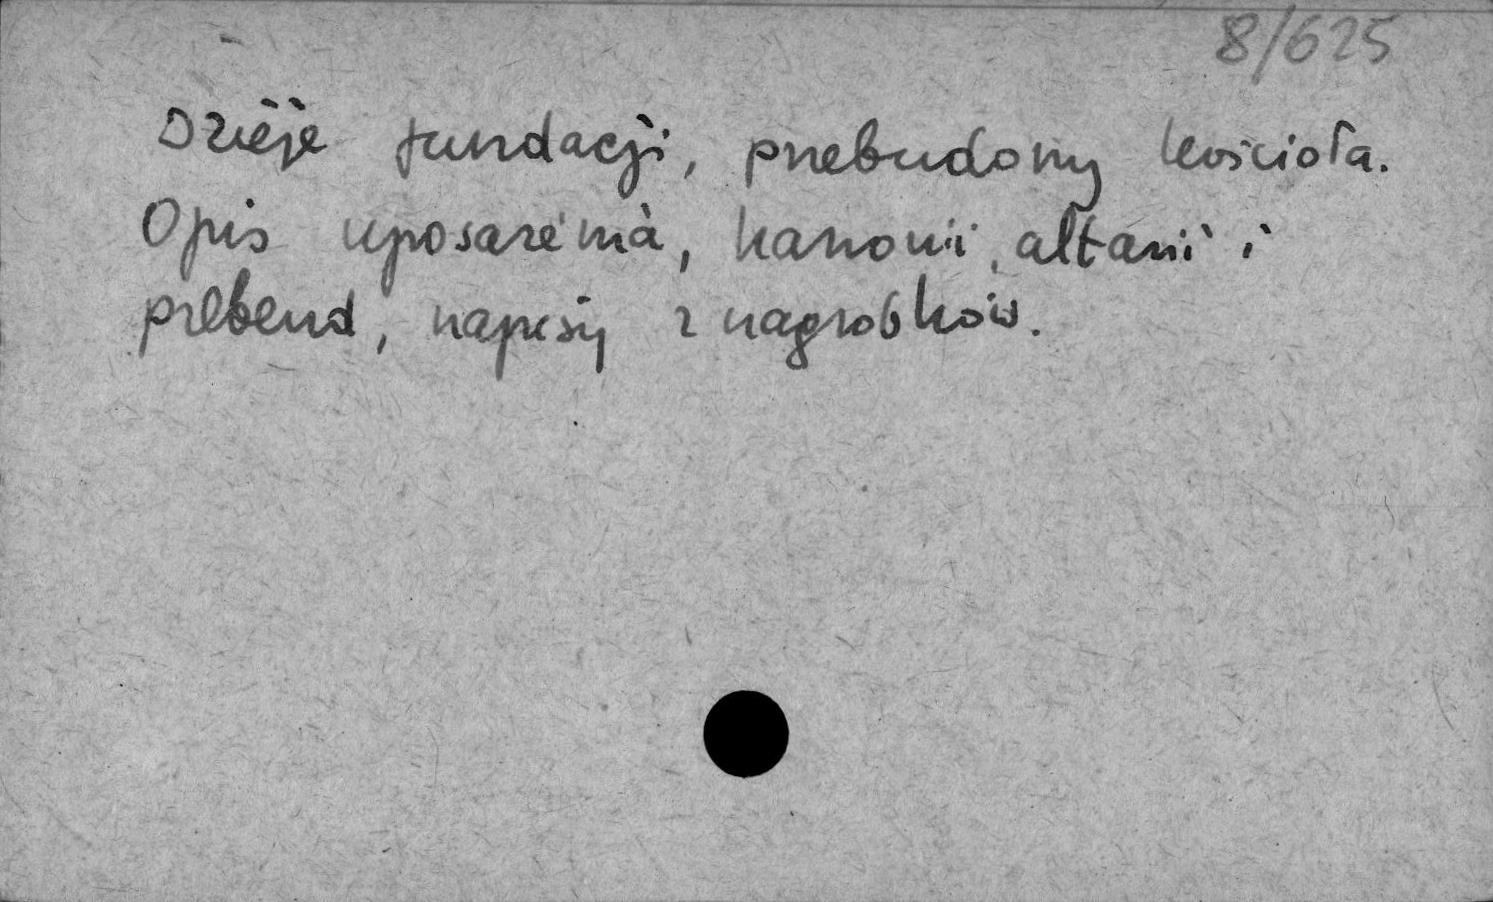 8/625
Dzieje fundacji, przebudowy kościoła.
Opis uposażenia, kanonii, altarii i
prebend, napisy z nagrobków.